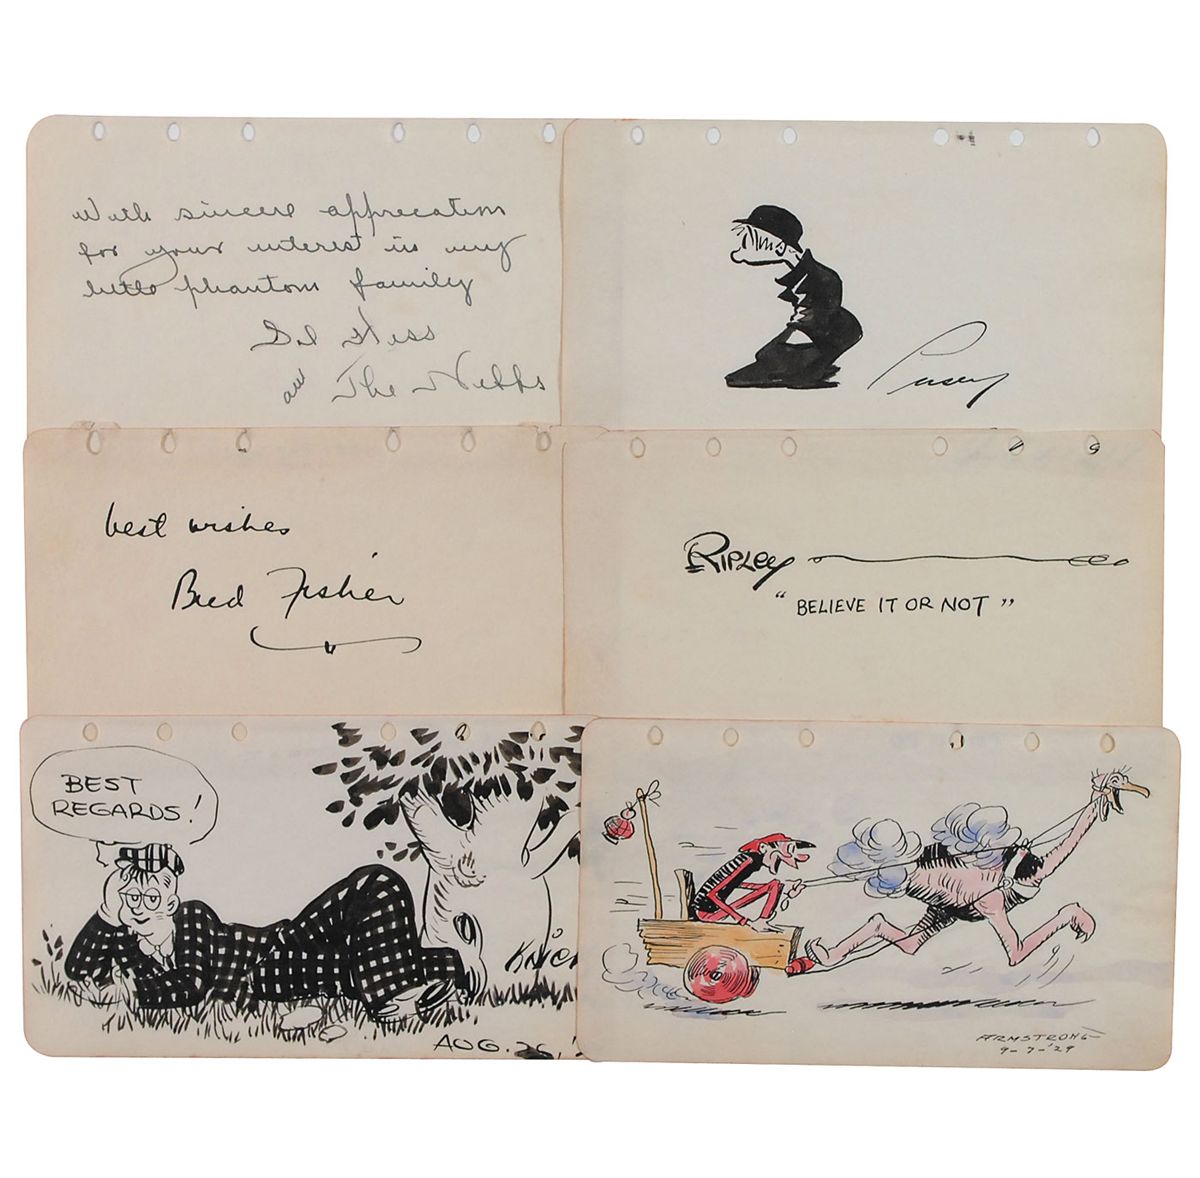 With sincere apprecation
for your interest in my
little phantom family
Sol Hess
and The Nebbs
Percy
best wishes
Bud Fisher
RIPLEY
"BELIEVE IT OR NOT"
BEST
REGARDS!
AUG. 26, '
ARMSTRONG
9-7-'29